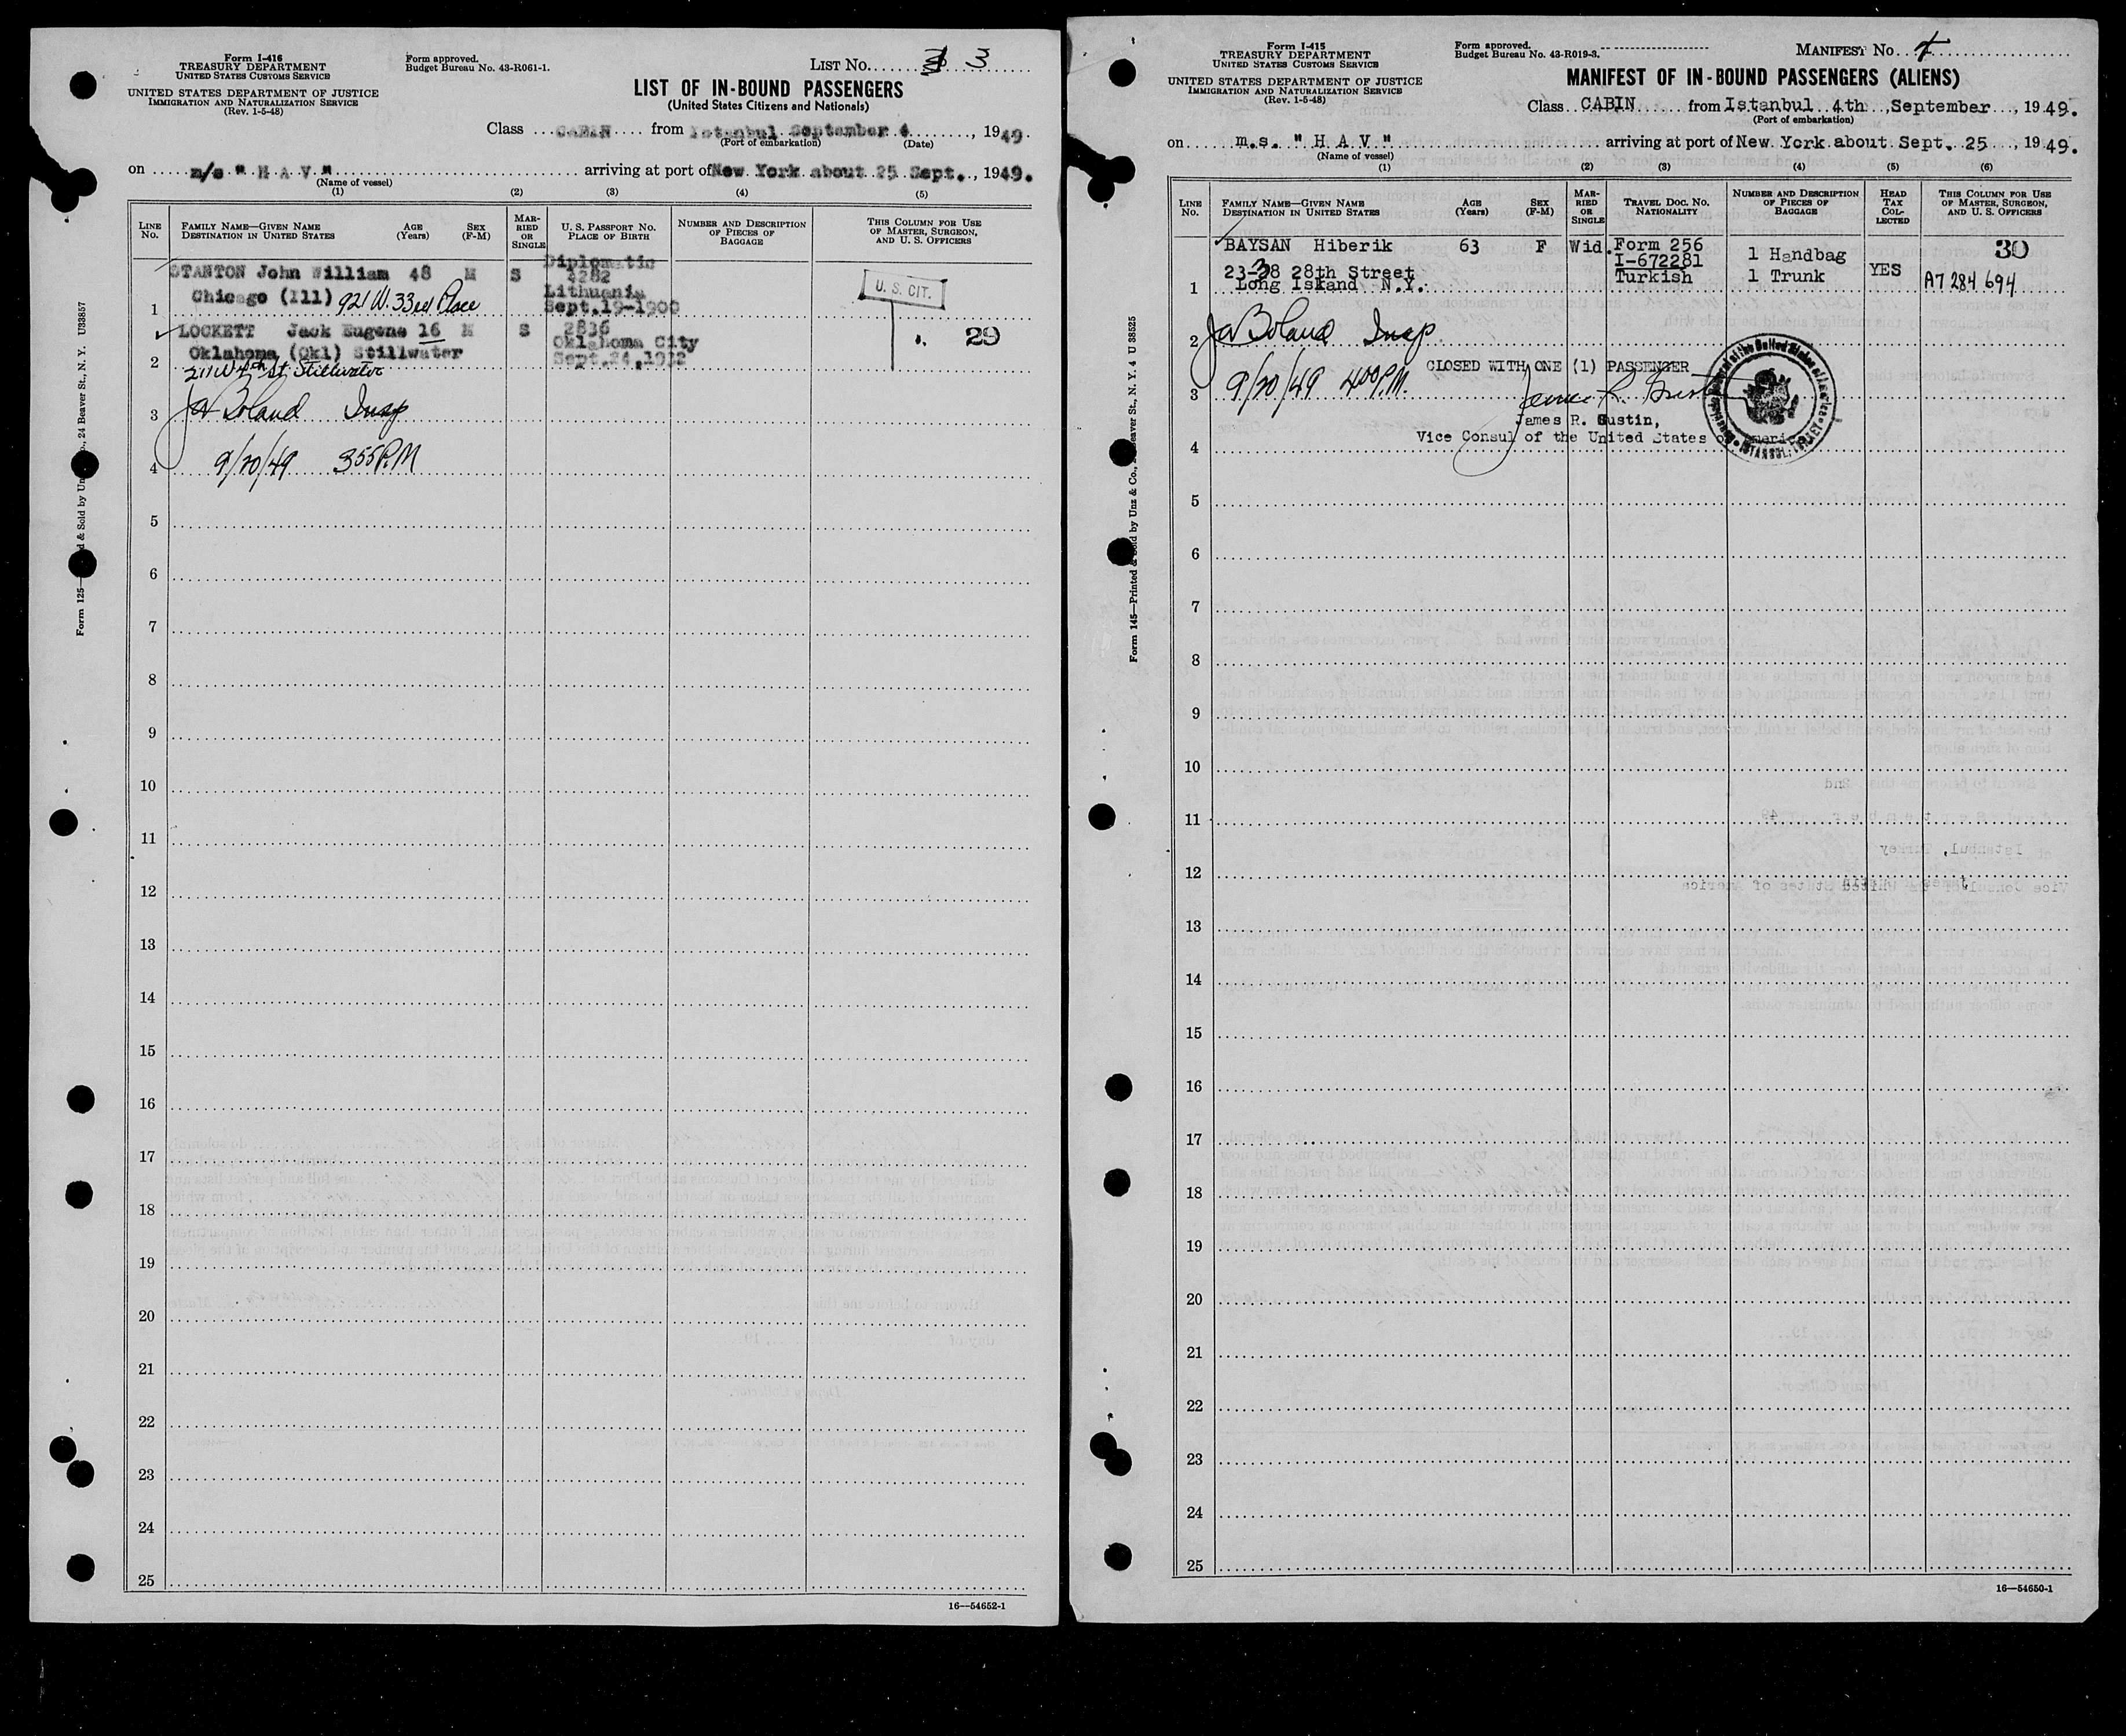 Form I-416
TREASURY DEPARTMENT
UNITED STATES CUSTOMS SERVICE
UNITED STATES DEPARTMENT OF JUSTICE
IMMIGRATION AND NATURALIZATION SERVICE
(Rev. 1-5-48)
Form approved.
Budget Bureau No. 43-R061-1.
LIST NO. 3
LIST OF IN-BOUND PASSENGERS
(United States Citizens and Nationals)
Class CABIN from Istanbul September 4, 1949.
(Port of embarkation) (Date)
on m/s "H A V" arriving at port of New York about 25 Sept., 1949.
(Name of vessel)
(1) (2) (3) (4) (5)
LINE NO.
FAMILY NAME—GIVEN NAME
DESTINATION IN UNITED STATES
AGE (Years)
SEX (F-M)
MARRIED OR SINGLE
U. S. PASSPORT NO.
PLACE OF BIRTH
NUMBER AND DESCRIPTION OF PIECES OF BAGGAGE
THIS COLUMN FOR USE OF MASTER, SURGEON, AND U. S. OFFICERS
Diplomatic
STANTON John William 48 M S 4282
Lithuania
1 Chicago (Ill) 921 W. 33rd Place Sept.19-1900
U. S. CIT.
LOCKETT Jack Eugene 16 M S 2836 29
Oklahoma (Okl) Stillwater Oklahoma City
2 Stillwater
3 Boland Insp
4 9/20/49 355 P.M
5
6
7
8
9
10
11
12
13
14
15
16
17
18
19
20
21
22
23
24
25
16—54652-1
24 Beaver St., N. Y. U33857
Form I-415
TREASURY DEPARTMENT
UNITED STATES CUSTOMS SERVICE
UNITED STATES DEPARTMENT OF JUSTICE
IMMIGRATION AND NATURALIZATION SERVICE
(Rev. 1-5-48)
Form approved.
Budget Bureau No. 43-R019-3.
MANIFEST NO. 4
MANIFEST OF IN-BOUND PASSENGERS (ALIENS)
Class CABIN from Istanbul 4th, September, 1949.
(Port of embarkation)
on m.s. "H A V" arriving at port of New York about Sept. 25, 1949.
(Name of vessel)
(1) (2) (3) (4) (5) (6)
LINE NO.
FAMILY NAME—GIVEN NAME
DESTINATION IN UNITED STATES
AGE (Years)
SEX (F-M)
MARRIED OR SINGLE
TRAVEL DOC. NO.
NATIONALITY
NUMBER AND DESCRIPTION OF PIECES OF BAGGAGE
HEAD TAX COLLECTED
THIS COLUMN FOR USE OF MASTER, SURGEON, AND U. S. OFFICERS
BAYSAN Hiberik 63 F Wid. Form 256 30
I-672281 1 Handbag
28th Street Turkish 1 Trunk YES A7 284 694
1 Long Island N.Y.
2 Boland Insp
CLOSED WITH ONE (1) PASSENGER
3 9/20/49 400 P.M.
James R. Gustin,
Vice Consul of the United States of America
4
5
6
7
8
9
10
11
12
13
14
15
16
17
18
19
20
21
22
23
24
25
16—54650-1
Form 145—Printed & Sold by Unz & Co., Beaver St., N. Y. 4 U 38525